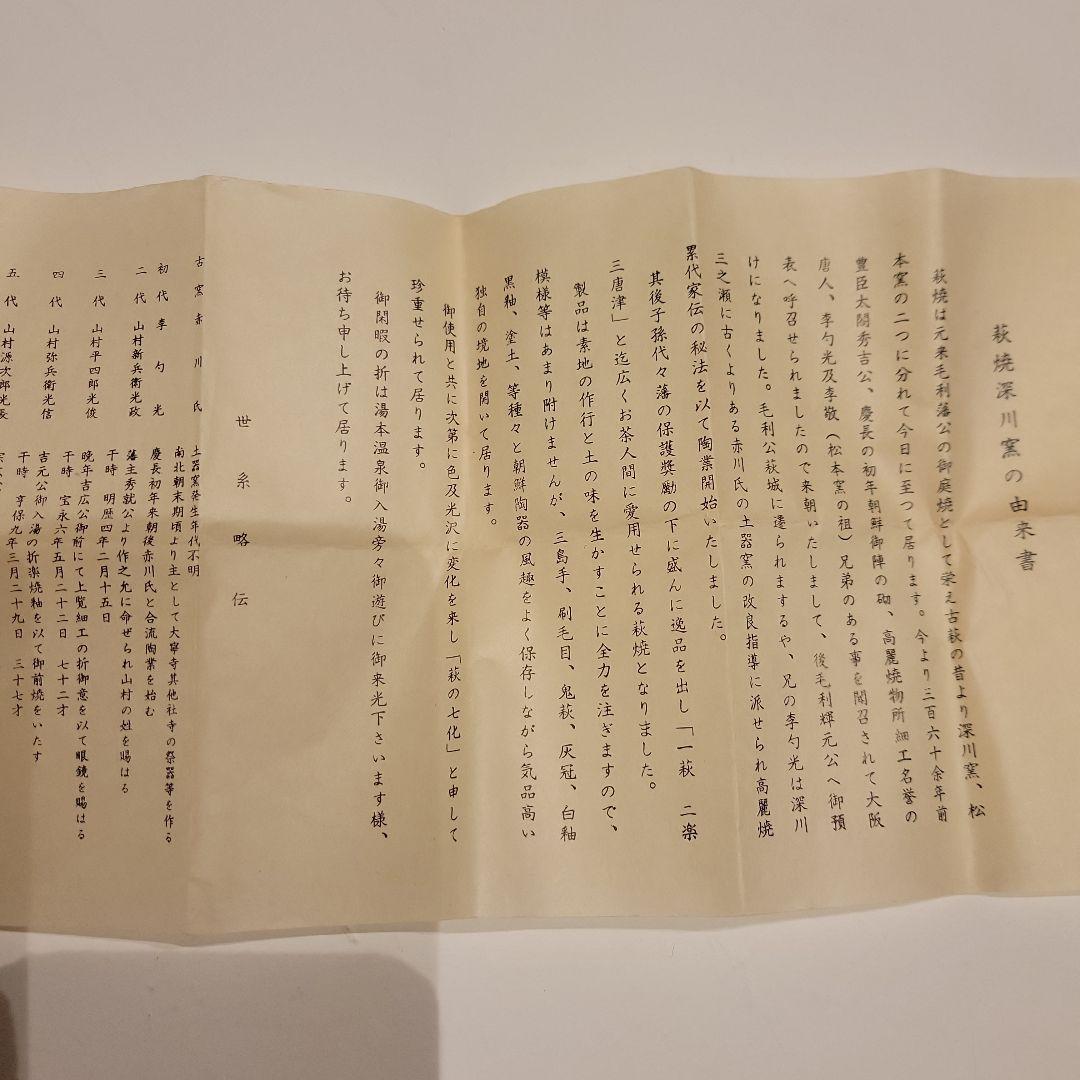 萩焼深川窯の由来書
萩焼は元来毛利藩公の御庭焼として栄え古萩の昔より深川窯、松
本窯の二つに分れて今日に至つて居ります。今より三百六十余年前
豊臣太閤秀吉公、慶長の初年朝鮮御陣の砌、高麗焼物所細工名誉の
唐人、李勺光及李敬（松本窯の祖）兄弟のある事を聞召されて大阪
表へ呼召せられましたので来朝いたしまして、後毛利輝元公へ御預
けになりました。毛利公萩城に遷られまするや、兄の李勺光は深川
三之瀬に古くよりある赤川氏の土器窯の改良指導に派せられ高麗焼
累代家伝の秘法を以て陶業開始いたしました。
其後子孫代々藩の保護奨励の下に盛んに逸品を出し「一萩　二楽
三唐津」と迄広くお茶人間に愛用せられる萩焼となりました。
製品は素地の作行と土の味を生かすことに全力を注ぎますので、
模様等はあまり附けませんが、三島手、刷毛目、鬼萩、灰冠、白釉
黒釉、塗土、等種々と朝鮮陶器の風趣をよく保存しながら気品高い
独自の境地を開いて居ります。
御使用と共に次第に色及光沢に変化を来し「萩の七化」と申して
珍重せられて居ります。
御閑暇の折は湯本温泉御入湯旁々御遊びに御来光下さいます様、
お待ち申し上げて居ります。
世系略伝
古窯赤川氏　土器窯発生年代不明
南北朝末期頃より主として大寧寺其他社寺の祭器等を作る
初代　李勺光　慶長初年来朝後赤川氏と合流陶業を始む
二代　山村新兵衛光政　藩主秀就公より作之允に命ぜられ山村の姓を賜はる
干時　明暦四年二月十五日
三代　山村平四郎光俊　晩年吉広公御前にて上覧細工の折御意を以て眼鏡を賜はる
干時　宝永六年五月二十二日　七十二才
四代　山村弥兵衛光信　吉元公御入湯の折楽焼釉を以て御前焼をいたす
干時　享保九年三月二十九日　三十七才
五代　山村源次郎光長